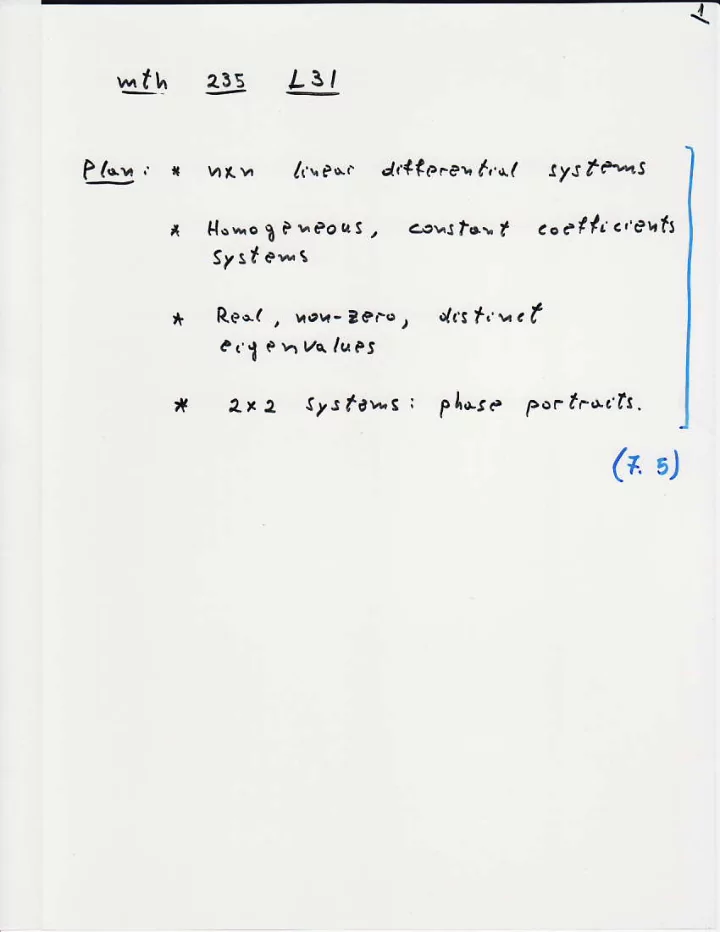 1
mth 235 L31
Plan: * nxn linear differential systems
* Homogeneous, constant coefficients
systems
* Real, non-zero, distinct
eigenvalues
* 2x2 systems: phase portraits.
(7.5)